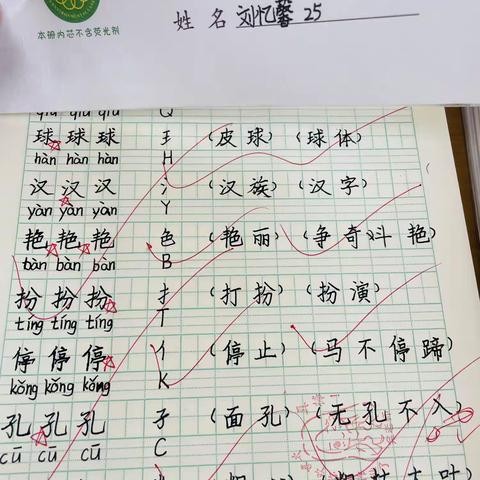 本册内芯不含荧光剂
姓名 刘忆馨 25
qiú qiú qiú Q
球 球 球 王 (皮球)(球体)
hàn hàn hàn H
汉 汉 汉 氵 (汉族)(汉字)
yàn yàn yàn Y
艳 艳 艳 色 (艳丽)(争奇斗艳)
bàn bàn bàn B
扮 扮 扮 扌 (打扮)(扮演)
tíng tíng tíng T
停 停 停 亻 (停止)(马不停蹄)
kǒng kǒng kǒng K
孔 孔 孔 子 (面孔)(无孔不入)
cū cū cū C